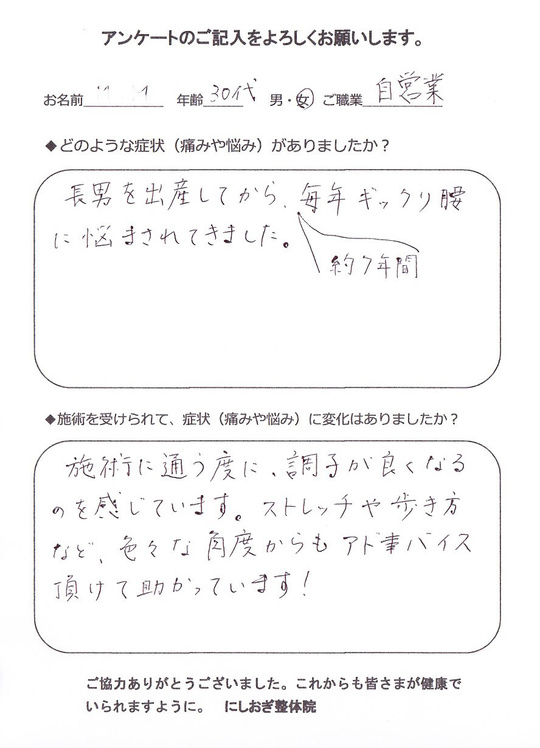 アンケートのご記入をよろしくお願いします。
お名前 年齢 30代 男・女 ご職業 自営業
◆どのような症状（痛みや悩み）がありましたか？
長男を出産してから、毎年ギックリ腰
に悩まされてきました。
約7年間
◆施術を受けられて、症状（痛みや悩み）に変化はありましたか？
施術に通う度に、調子が良くなる
のを感じています。ストレッチや歩き方
など、色々な角度からもアド事バイス
頂けて助かっています！
ご協力ありがとうございました。これからも皆さまが健康で
いられますように。 にしおぎ整体院